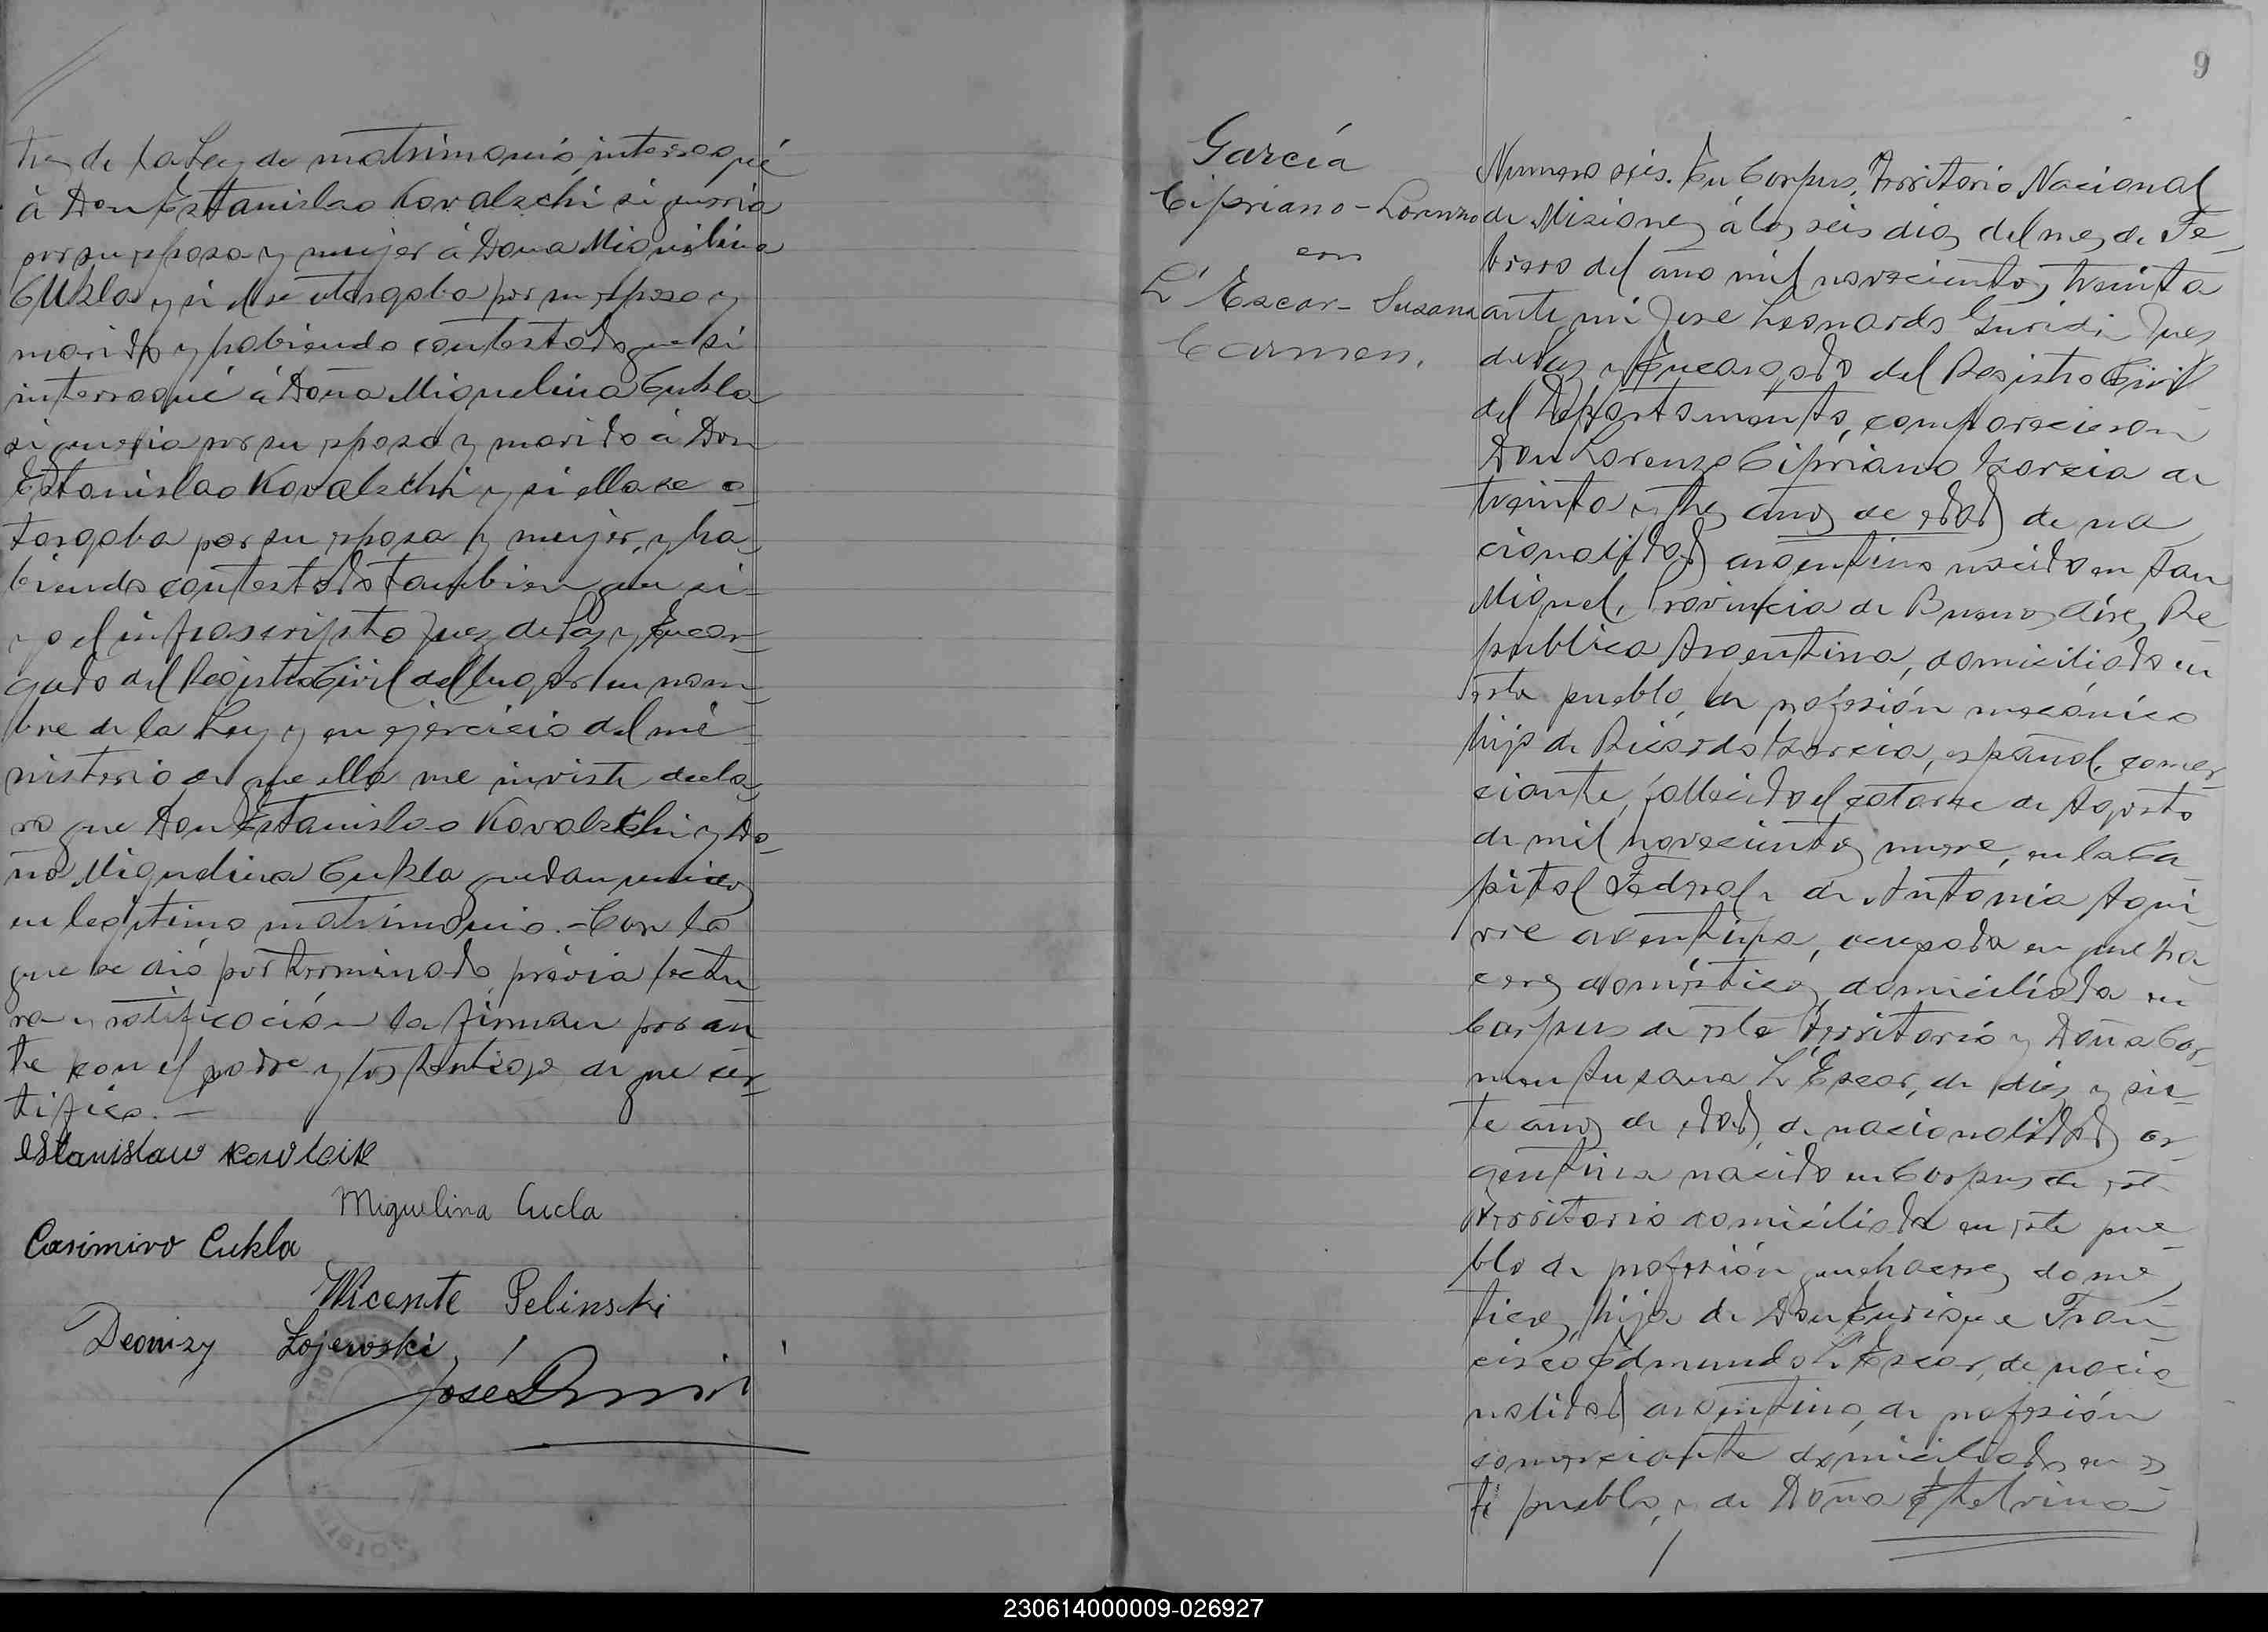 tres de la Ley de matrimonio, interrogué
á Don Estanislao Kovalschi si queria
por su esposa y mujer á Doña Miquelina
Cukla y si el se otorgaba por su esposo y
marido y habiendo contestado que si
interrogué á Doña Miquelina Cukla
si queria por su esposo y marido á Don
Estanislao Kovalschi y si ella se o-
torgaba por su esposa y mujer, y ha-
biendo contestado tambien que si-
yo el infrascripto Juez de Paz y Encar-
gado del Registro Civil del lugar en nom-
bre de la Ley y en ejercicio del mi-
nisterio de que ella me inviste decla-
ro que Don Estanislao Kovalschi y Do-
ña Miquelina Cukla quedan unidos
en legitimo matrimonio.-Con lo
que se dió por terminado, prévia lectu
ra y ratificación la firman por an
te con el padre y los testigos de que cer-
tifico.-
Estanislaw
Miguelina Cucla
Casimiro Cukla
Wicente Pelinski
Deonizy Lojewski
José
9
García
Cipriano-Lorenzo
con
L'Escar-Susana
Carmen.
Numero seis. En Corpus, Territorio Nacional
de Misiones á los seis dias del mes de Fe-
brero del año mil novecientos treinta
ante mi Jose Leonardo Guridi Juez
de Paz y Encargado del Registro Civil
del Departamento, comparecieron
Don Lorenzo Cipriano Garcia de
treinta y tres años de edad de na
cionalidad argentino nacido en San
Miguel, Provincia de Buenos Aires, Re-
publica Argentina, domiciliado en
este pueblo, de profesión mecánico
hijo de Ricardo Garcia, español, comer-
ciante, fallecido el catorce de Agosto
de mil novecientos nueve, en la Ca-
pital Federal y de Antonia Agui-
rre argentina, ocupada en queha-
ceres domésticos, domiciliada en
Corpus de este Territorio y Doña Car-
men Susana L'Escar, de diez y sie-
te años de edad, de nacionalidad ar-
gentina nacida en Corpus de este
Territorio domiciliada en este pue-
blo de profesión quehaceres domés-
ticos, hija de Don Enrique Fran-
cisco Edmundo L'Escar, de nacio
nalidad argentino, de profesión
comerciante domiciliado en es
te pueblo, y de Doña Etelvina
230614000009-026927